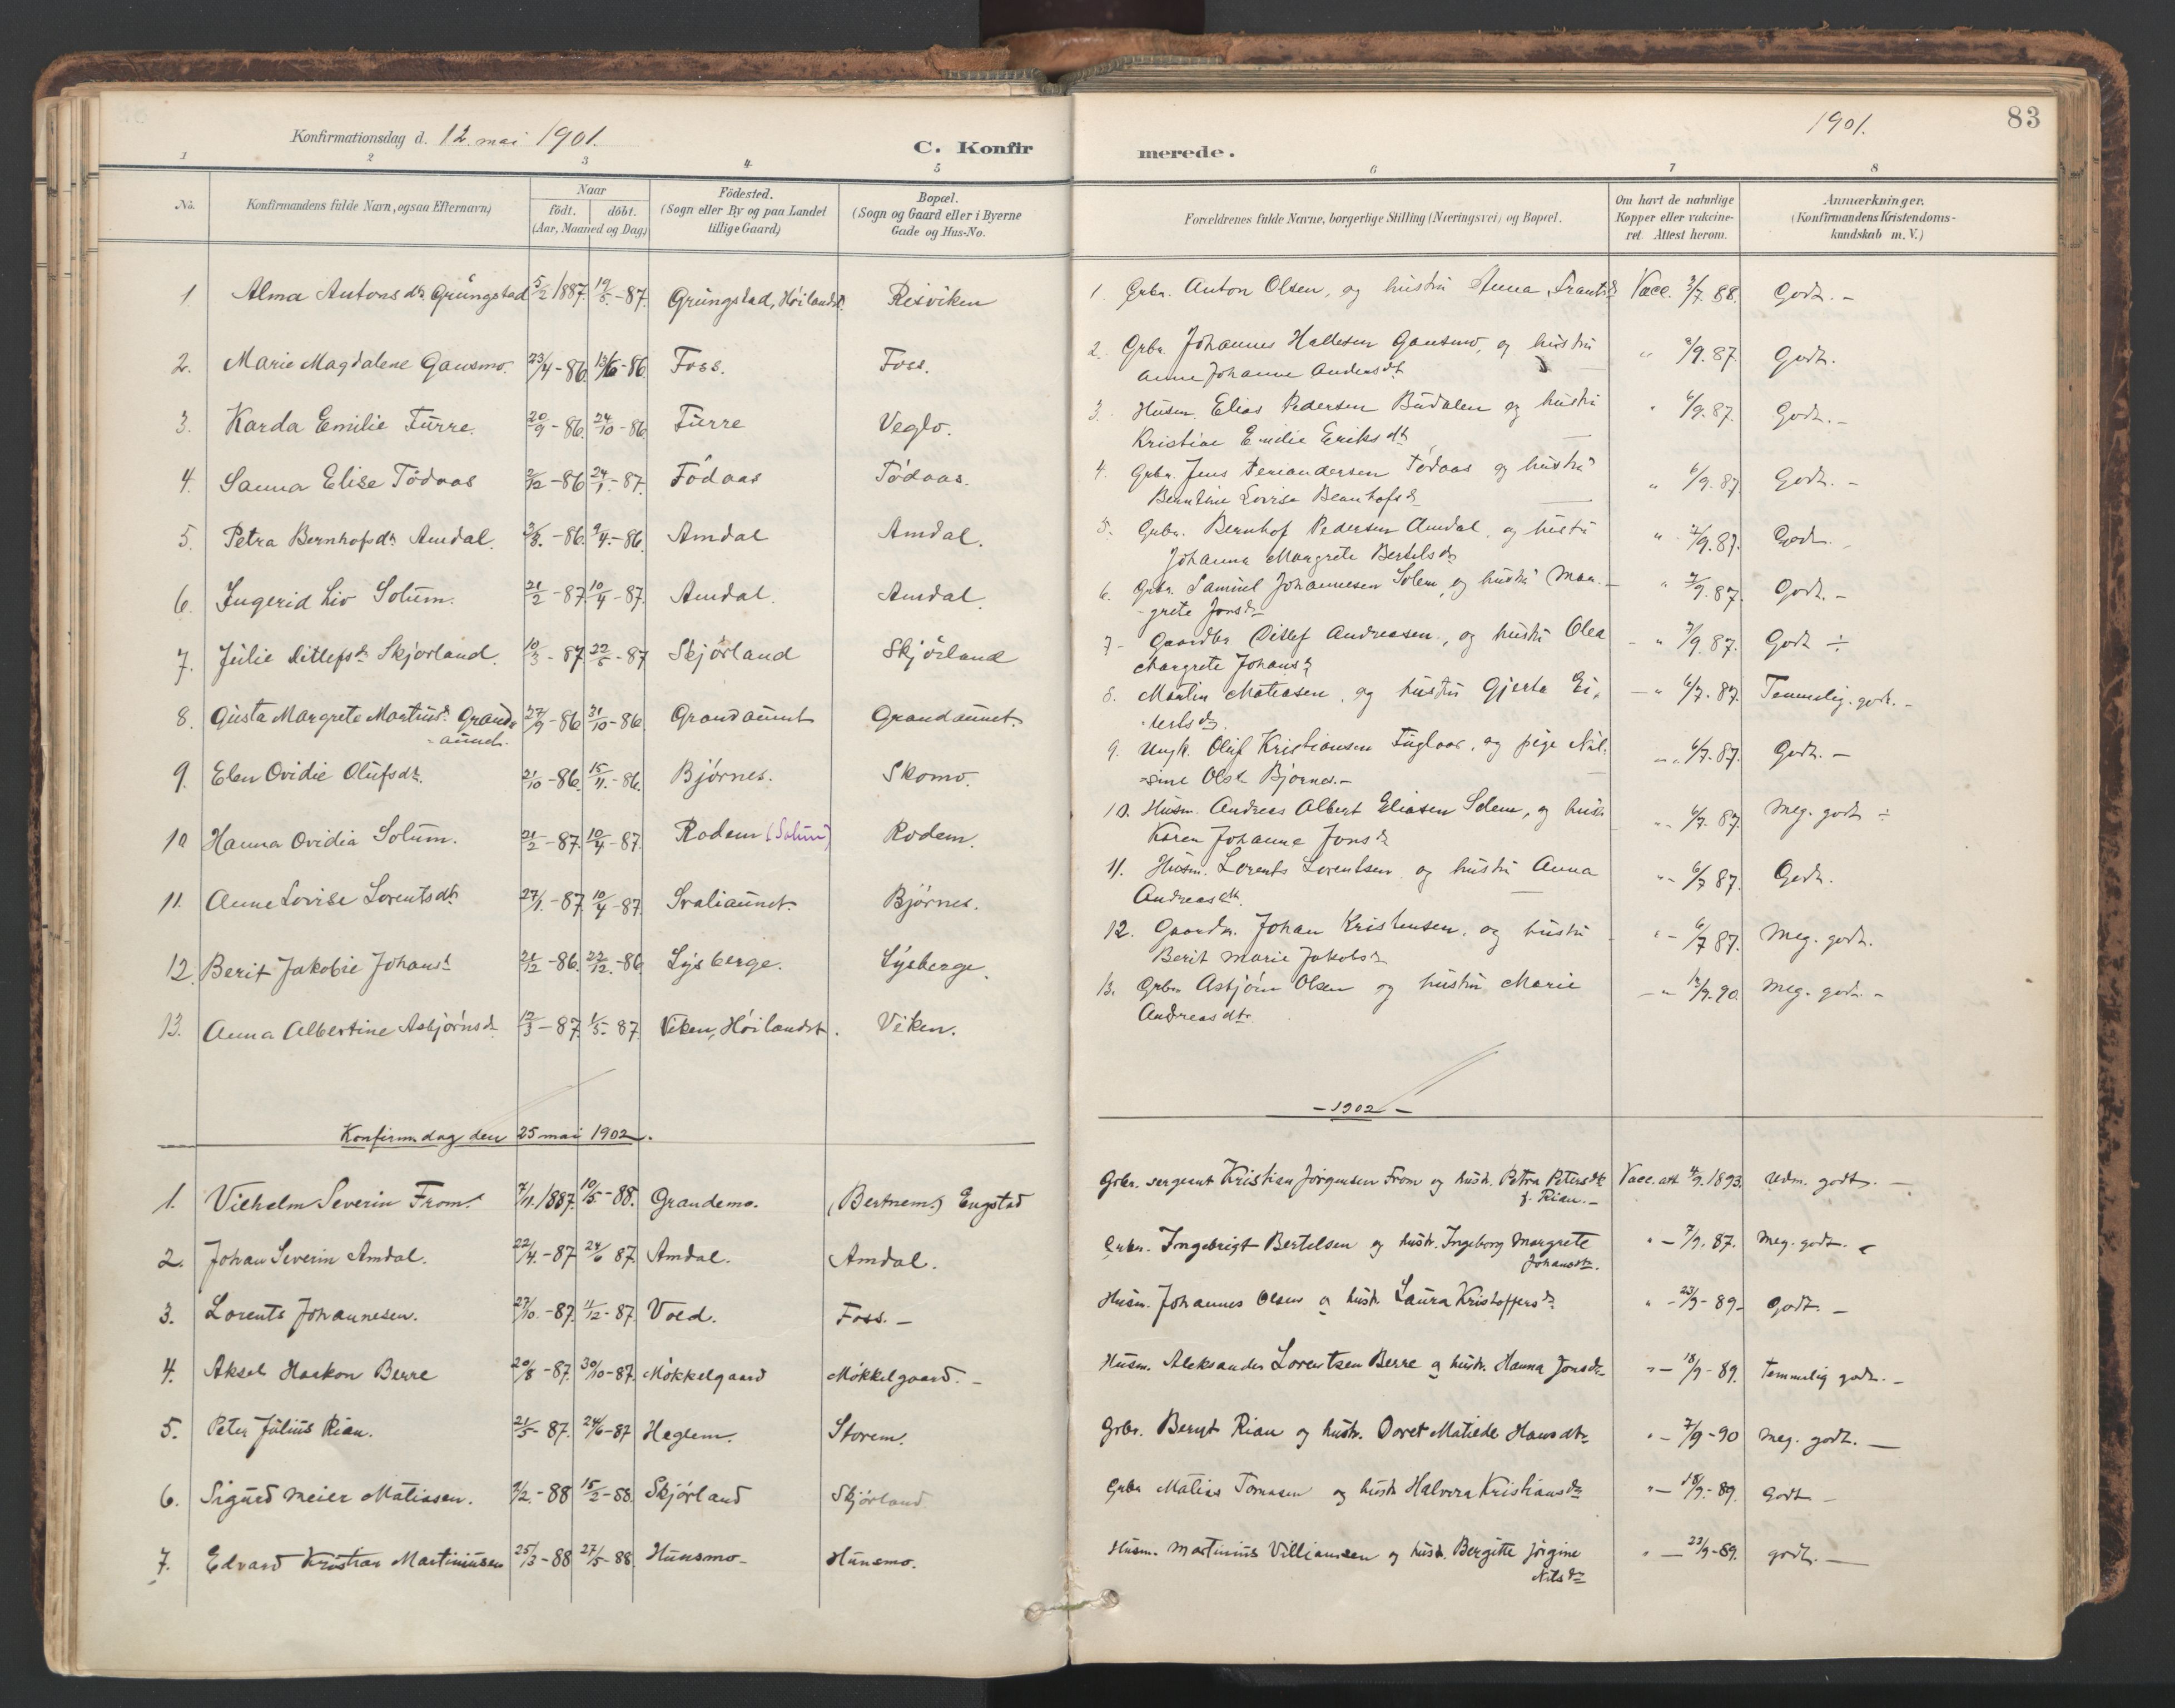 Konfirmationsdag d. 12. mai 1901.
C. Konfir
1 2 3 4 5
No.
Konfirmandens fulde Navn, ogsaa Efternavn)
Naar
födt. döbt.
(Aar, Maaned og Dag)
Födested.
(Sogn eller By og paa Landet
tillige Gaard)
Bopæl.
(Sogn og Gaard eller i Byerne
Gade og Hus-No.
1 Alma Antons dt. Grüngstad 5/2 1887. 19/5.-87. Grüngstad, Höilandst. Risviken
2. Marie Magdalene Gausmo. 23/4-86. 13/6-86 Foss. Foss.
3. Karda Emilie Furre. 20/9-86. 24/10-86 Furre Veglo.
4. Sanna Elise Tödaas 2/12-86 24/1.-87. Tödaas Tödaas.
5. Petra Bernhofsdt. Amdal. -86. 9/4.-86. Amdal Amdal.
6. Ingerid Liv Solum. 21/2-87. 10/4-87. Amdal. Amdal.
7. Julie Ditlefsdt. Skjorland. 10/3-87. 22/5-87 Skjörland Skjörland
8. Gusta Margrete Martinsdt. Grand-
aunet. 27/9-86 31/10-86. Grandaunet Grandaunet.
9. Elen Ovidie Olufsdt. 21/10-86. 15/11.-86. Björnes. Skomo.
10 Hanna Ovidia Solum. 21/2-87. 10/4-87. Rodem (Solum) Rodem.
11. Anne Lovise Lorentsdt. 27/1.-87. 10/4-87. Svaliaunet. Björnes.
12. Berit Jakobie Johansdt. 21/12-86. 22/12.-86 Lysberge. Lysberge.
13. Anna Albertine Asbjörnsdt. 12/3-87. 1/5.87. Viken, Höilandst. Viken.
Konfirm.dag den 25 mai 1902.
1. Vilhelm Severin From. 7/11.1887. 10/5-88. Grandemo. (Bertnem.) Engstad
2. Johan Severin Amdal. 22/4.-87 24/6 87. Amdal. Amdal.
3. Lorents Johannesen. 27/10.-87. 11/12-87. Voed. Foss.-
4. Aksel Haakon Berre 20/8-87. 30/10-87. Mökkelgaard Mökkelgaard.-
5. Peter Julius Rian. 21/5-87. 24/6-87 Heglem. Storem.
6. Sigurd Meier Matiasen. 2/2.-88 15/2-88. Skjörland Skjörland
7. Edvard Kristian Martiniusen 25/3-88 27/5-88. Hunsmo- Hunsmo.
83
1901.
merede.
6 7 8
Forældrenes fulde Navne, borgerlige Stilling (Næringsvei) og Bopæl.
Om havt de naturlige
Kopper eller vakcine-
ret. Attest herom.
Anmærkninger.
(Konfirmandens Kristendoms-
kundskab m. V.)
1. Grbr. Anton Olsen, og hustru Anna Frantsdt. Vacc. 3/7.88. Godt.-
2. Grbr. Johannes Hallesen Gausmo, og hustru " /9.87. Godt.
Anne Johanne Andersdt.
3. Husm. Elias Pedersen Budalen og hustru " 6/9.87. Godt.-
Kristine Emilie Eriksdt.
4. Grbr. Jens Feriandersen Tödaas og hustru " 6/9.87. Godt.-
Berntine Lovise Bernhofsdt.
5. Grbr. Bernhof Pedersen Amdal, og hustru " 7/9.87. Godt.
Johanna Margrete Bertelsdt.
6. Grbr. Samuel Johannesen Solem, og hustru Mar- " 7/9.87. Godt.-
grete Jonsdt.
7- Gaardbr. Ditlef Andreasen, og hustru Olea - " 7/9.87. Godt ÷
Margrete Johansdt.
8. Martin Matiasen, og hustru Gjerta Ei- - " 6/7.87. Temmelig godt.-
lertsdt.
9. Ungk. Oluf Kristiansen Fuglaas, og pige Nil- - " 6/7.87. Godt.-
sine Olsdt. Björnes.-
10. Husm. Andreas Albert Eliasen Solem, og hustr. " 6/7.87. Meg. godt ÷
Karen Johanne Jonsdt.
11. Husm. Lorents Lorentsen og hustru Anna " - 6/7 87. Godt.
Andreasdt.
12. Gaardm. Johan Kristensen, og hustru " - 6/7 87. Meg. godt.
Berit Marie Jakobsdt.
13. Grbr. Asbjörn Olsen og hustru Marie - " 12/9.90. Meg. godt.-
Andreasdt.
- 1902 -
Grbr. sergeant Kristian Jörgensen From og hustr. Petra Petersdt. Vacc. att. 4/9.1893. Udm. godt.-
f. Rian.-
Grbr. Ingebrigt Bertelsen og hustr. Ingeborg Margrete " - 7/9.87. Meg. godt.-
Johansdt.
Husm. Johannes Olsen og hustr. Laura Kristoffersdt. " - 23/9-89- Godt.-
Husm. Aleksander Lorentsen Berre og hustr. Hanna Jonsdt. " - 18/9-89. Temmelig godt.-
Grbr. Bernt Rian og hustr. Doret Matilde Hansdt. " - 7/9-90 Meg. godt.-
Grbr Matias Tomasen og hustr. Halvora Kristiansdt. " - 18/9.-89. Godt-
Husm. Martinius Villiamsen og hustr. Bergitte Jörgine " - 23/9-89. godt.-
Nilsdt.